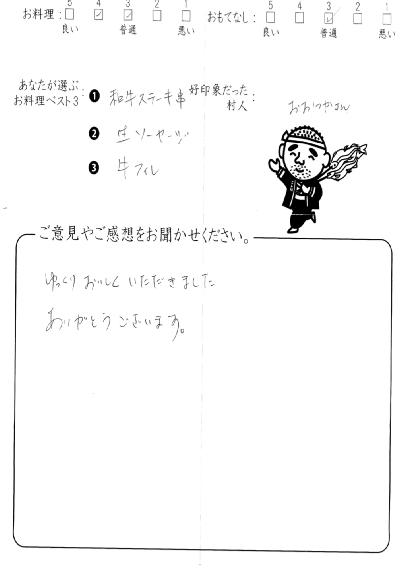 お料理: 5 4 3 2 1
良い 普通 悪い
おもてなし: 5 4 3 2 1
良い 普通 悪い
あなたが選ぶ
お料理ベスト3:
❶ 和牛ステーキ串
❷ 生ソーセージ
❸ 牛フィレ
好印象だった
村人:
おおつかさん
ご意見やご感想をお聞かせください。
ゆっくりおいしくいただきました
ありがとうございます。